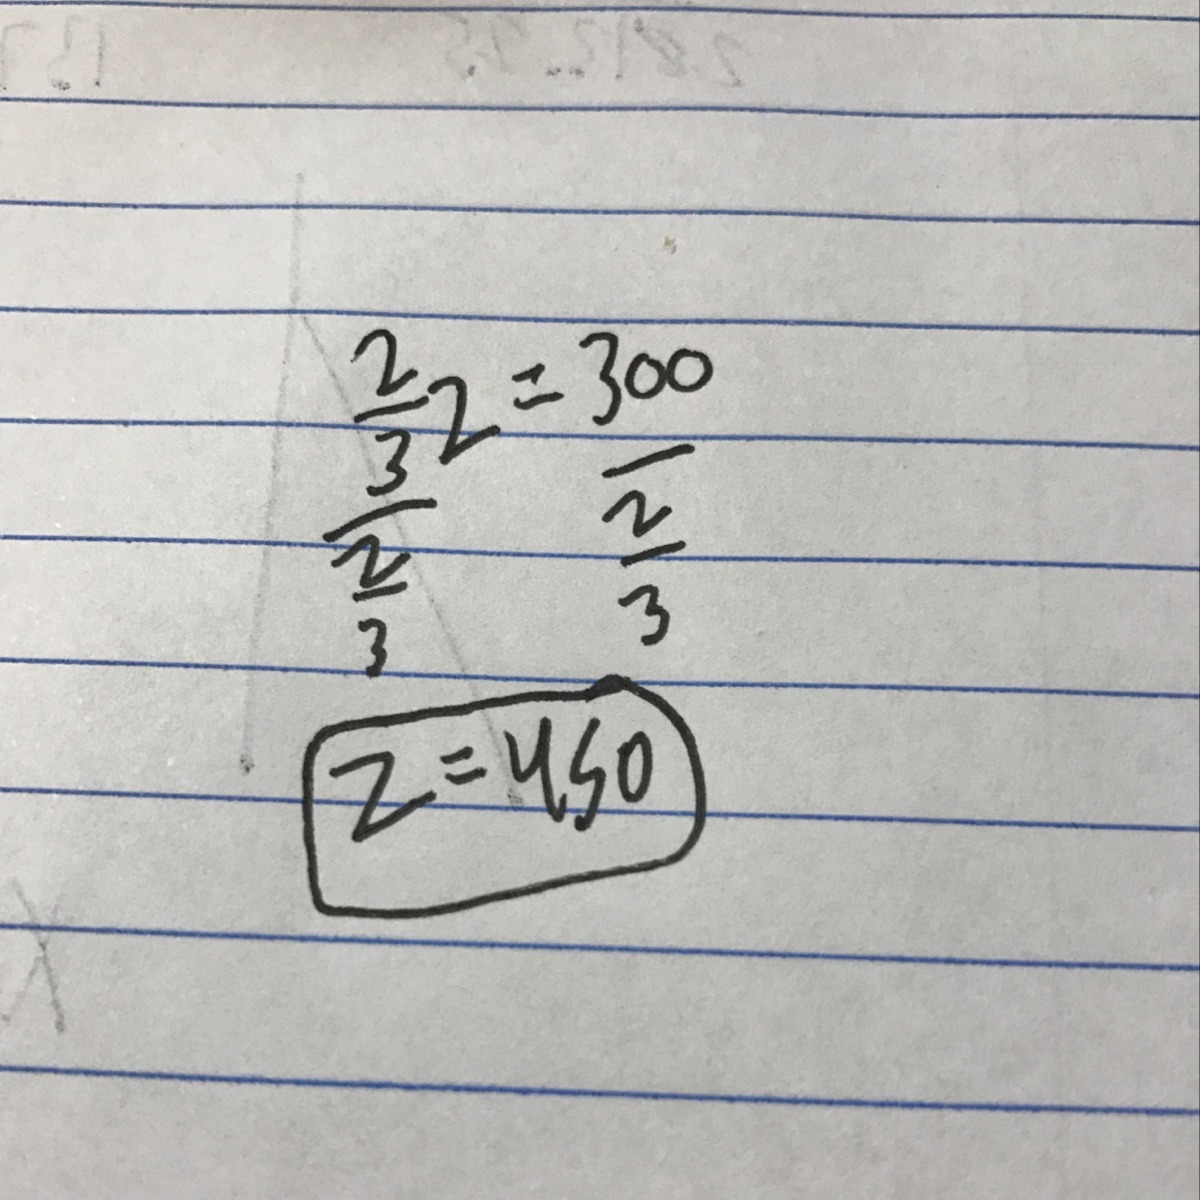 2/3 z = 300
2/3 2/3
z = 450